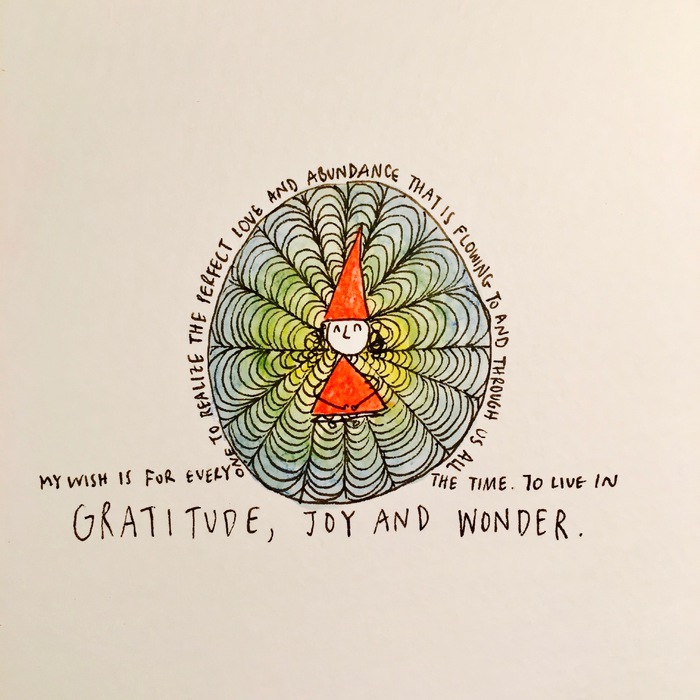 MY WISH IS FOR EVERYONE TO REALIZE THE PERFECT LOVE AND ABUNDANCE THAT IS FLOWING TO AND THROUGH US ALL THE TIME. TO LIVE IN
GRATITUDE, JOY AND WONDER.